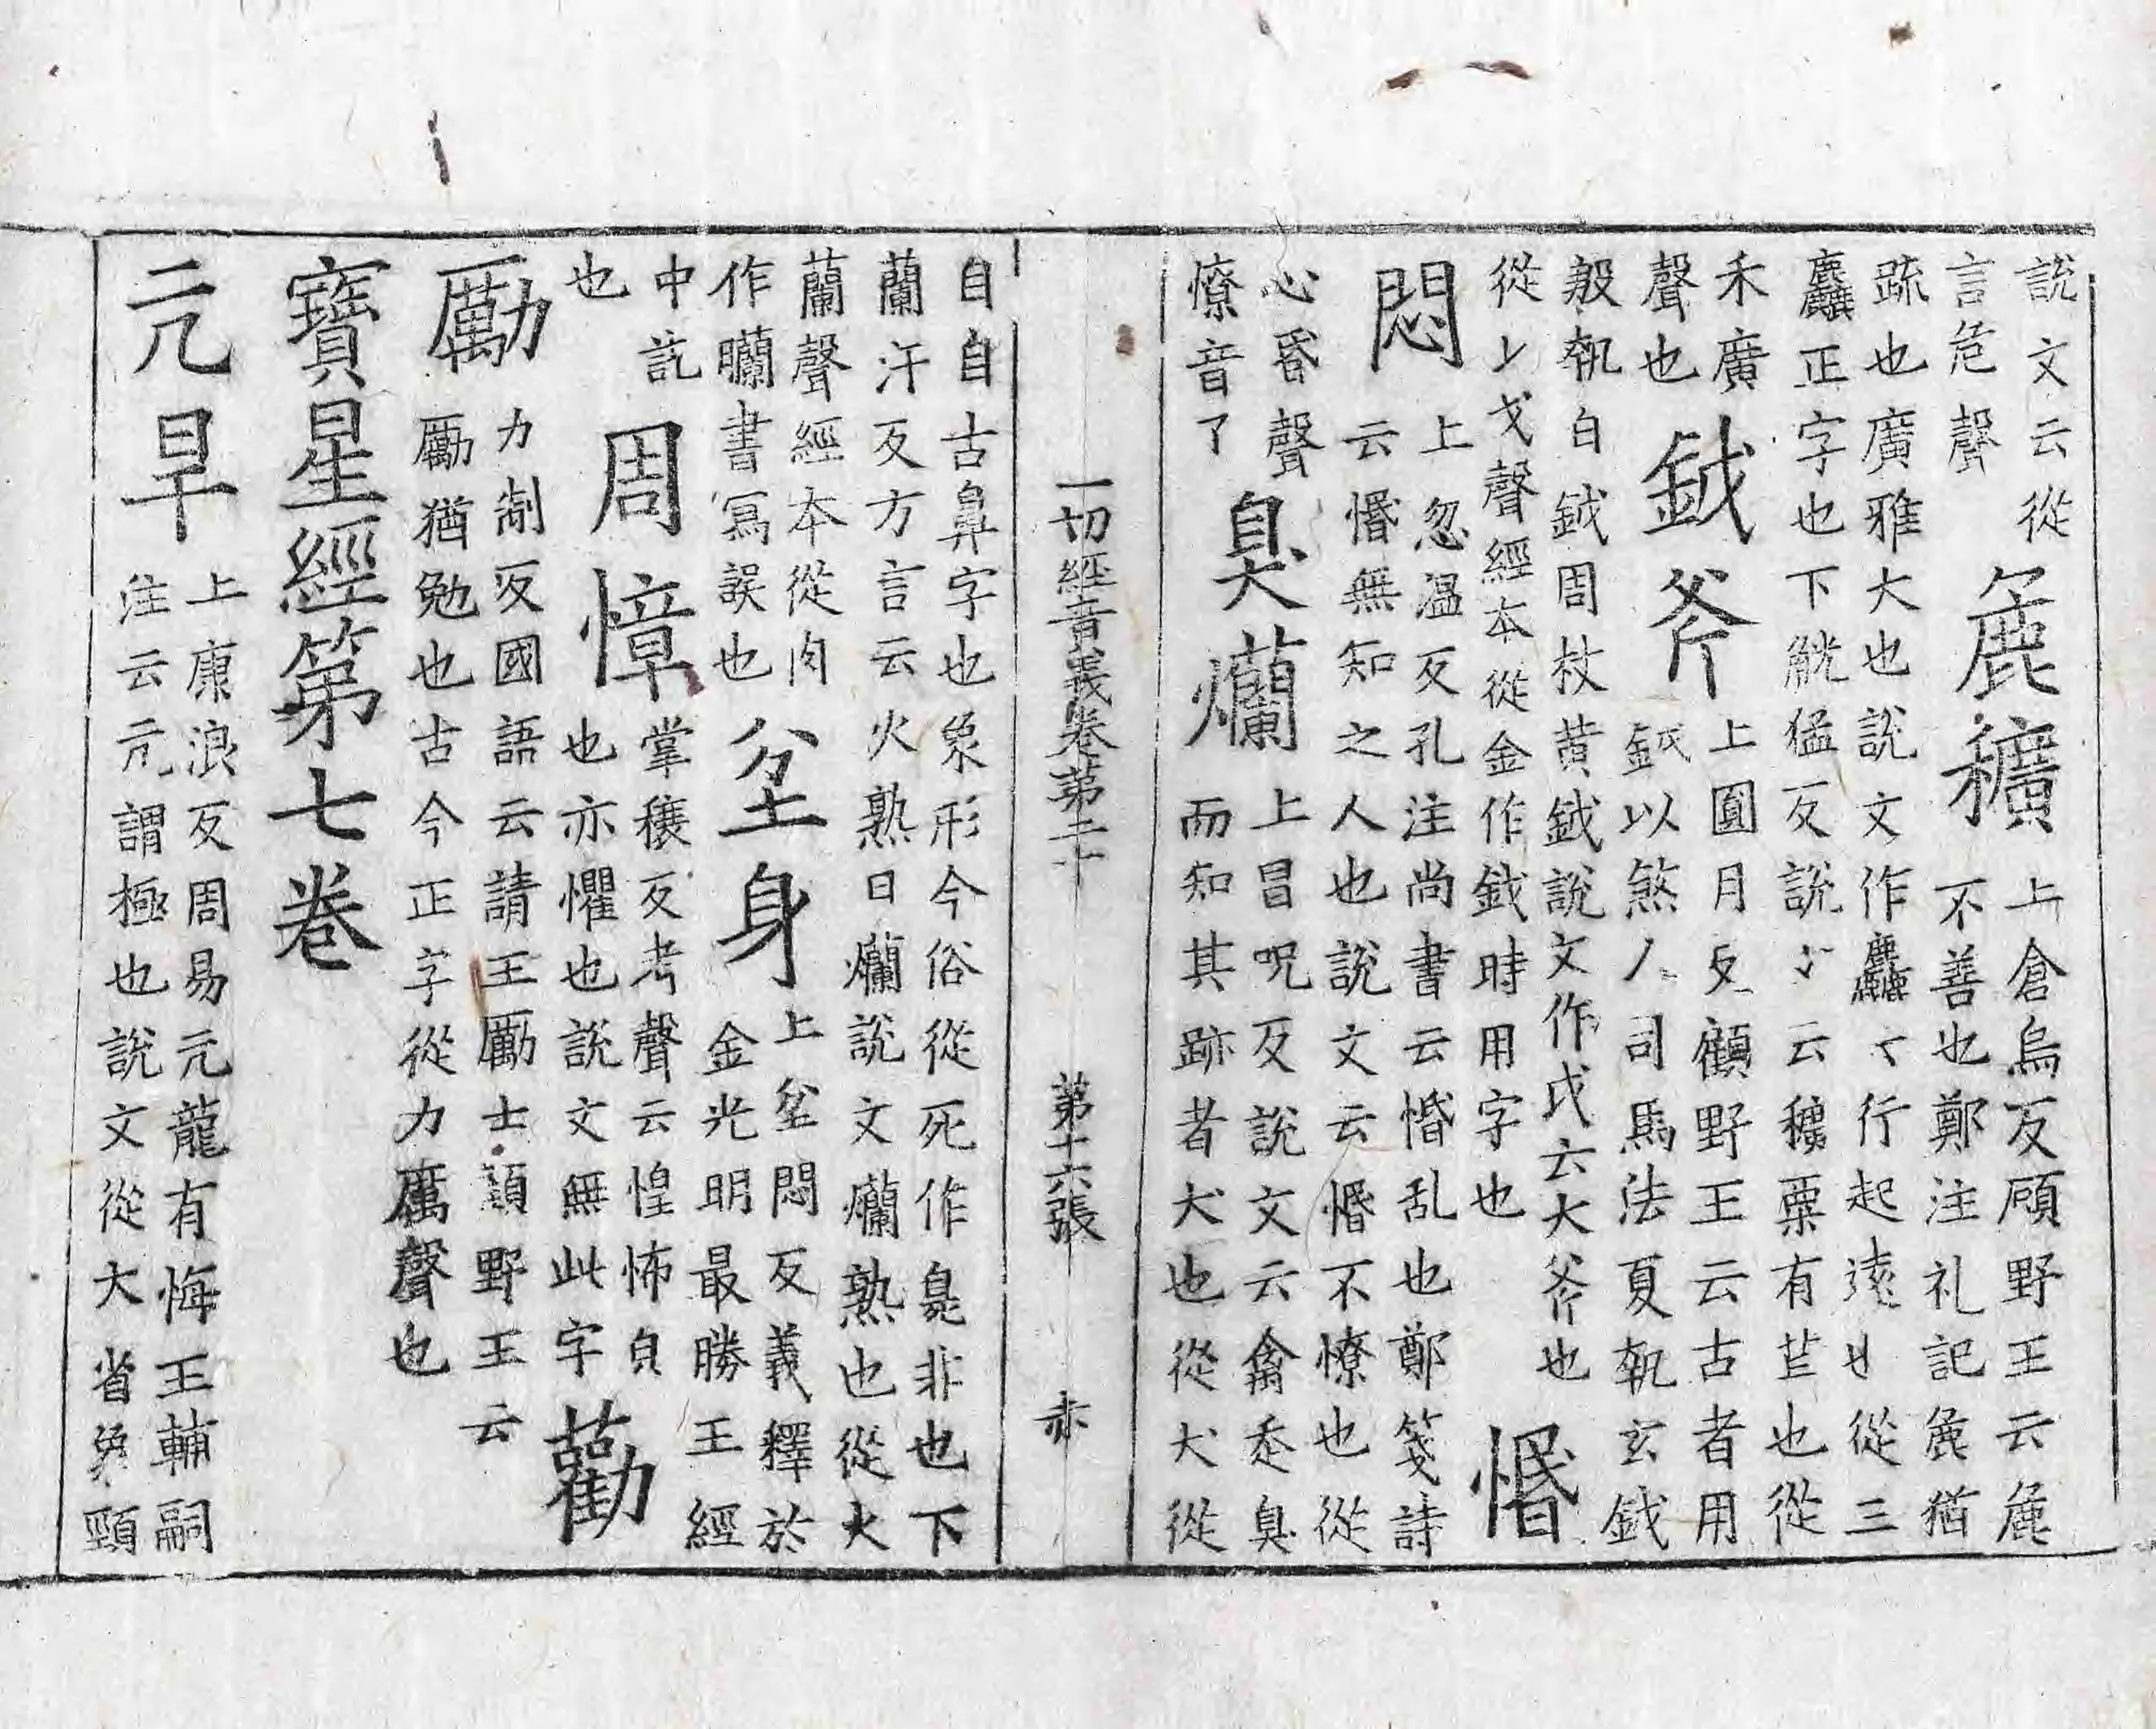 説文云從
言危聲
麁穬
上倉烏反顧野王云麁
不善也鄭注礼記麁猶
踈也廣雅大也説文作麤〻行超遠也從三
麤正字也下觥猛反説〻云穬粟有芒也從
禾廣
聲也
鉞斧
上圓月反顧野王云古者用
鉞以煞人司馬法夏執玄鉞
殷執白鉞周杖黄鉞説文作戉云大斧也
從レ戈聲經本從金作鉞時用字也
惛
悶
上忽温反孔注尚書云惛乱也鄭箋詩
云惛無知之人也説文云惛不憭也從
心昏聲
憭音了
臭爛
上昌呪反説文云禽走臭
而知其跡者犬也從犬從
一切經音義卷第二十 第十六張 赤
自自古鼻字也象形今俗從死作臰非也下
蘭汗反方言云火熟曰爛説文爛熟也從火
蘭聲經本從肉
作臞書寫誤也
坌身
上坌悶反義釋於
金光明最勝王經
中訖
也
周慞
掌穰反考聲云惶怖皃
也亦懼也説文無此字
勸
勵
力制反國語云請王勵士顧野王云
勵猶勉也古今正字從力厲聲也
寶星經第七卷
亢旱
上康浪反周易亢龍有悔王輔嗣
注云亢謂極也説文從大省象頸